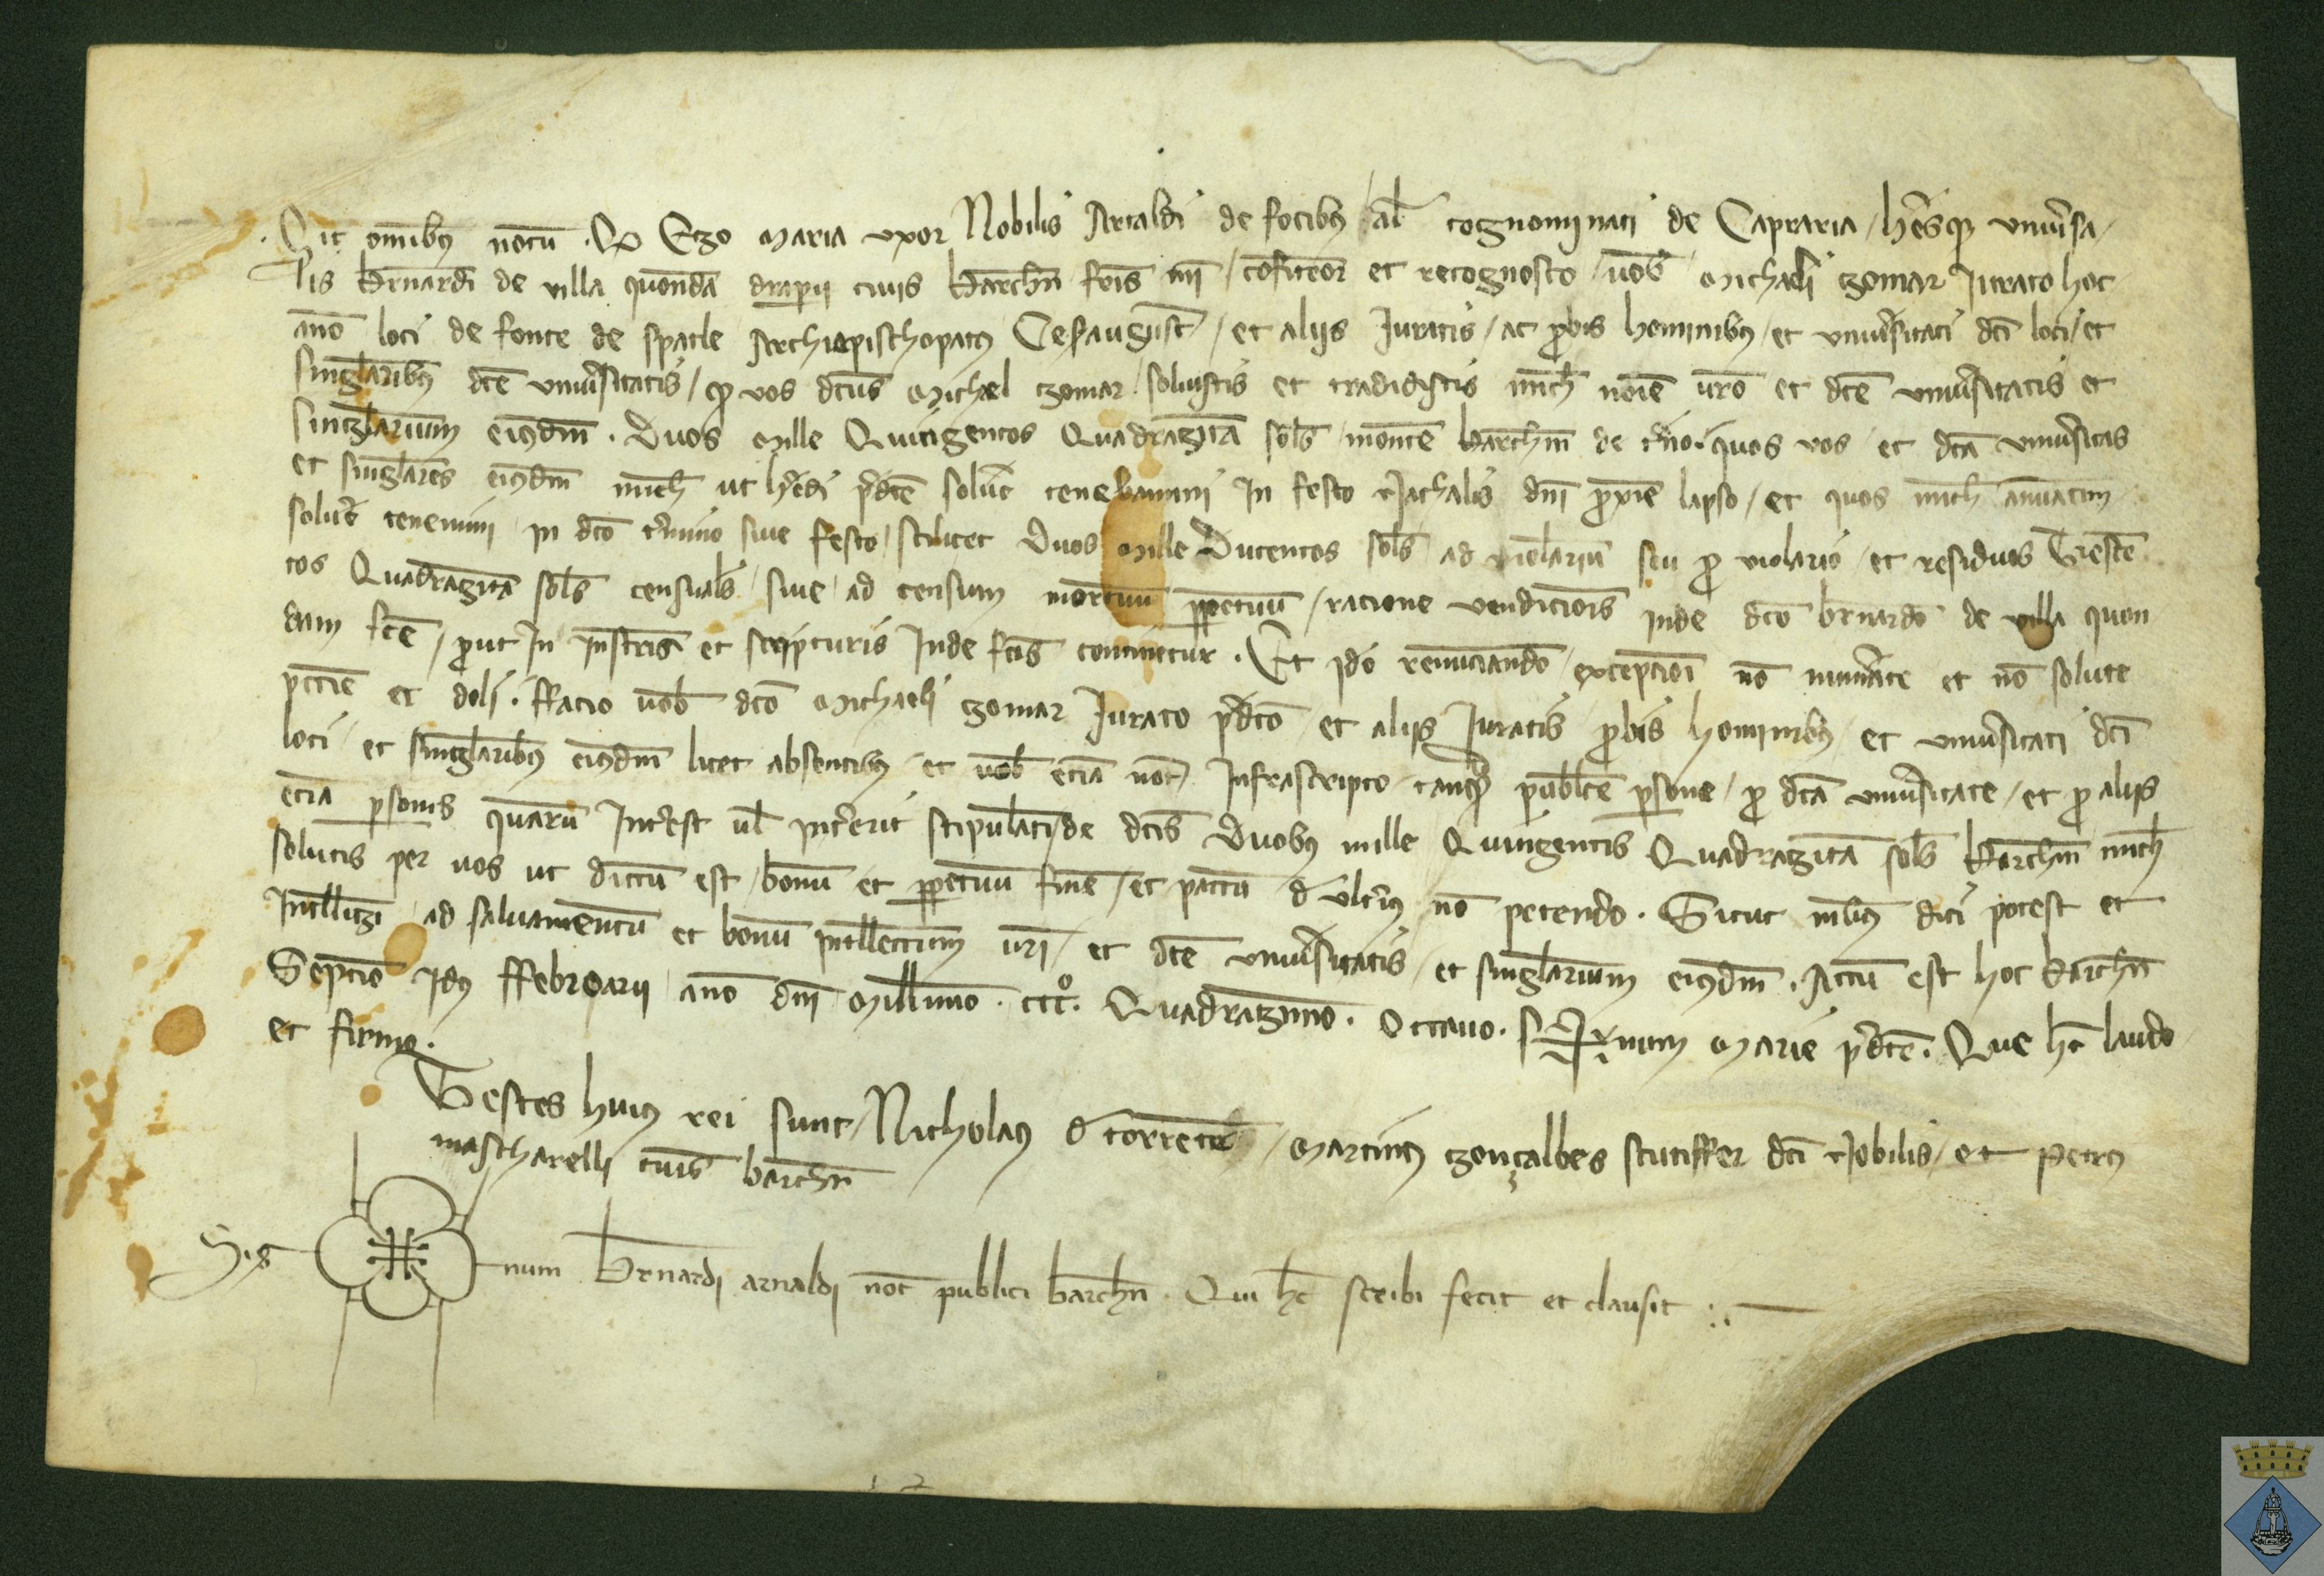 Sit omībus notū Qd Ego Maria uxor Nobilis Artaldi de focibus al cognominati de Capraria / hēsqȝ univsa /
lis Brnardi de villa quondā draperii civis Barchn fris mi / cōfiteor et recognosco / uob Michaeli gomar Jurato hoc
año loci de fonte de spatle Archiepischopatus Cesaugust / et aliis Juratis / ac pbis hominibus / et univsitati dci loci / et
singlaribus dce univsitatis / qȝ vos dcus Michael gomar solvistis et tradidistis mich noie uro et dce univsitatis et
singlarium eiusdm . Duos Mille Quingentos Quadragītā sols monete barchn de tno . quos vos et dcā univsitas
et singlares eiusdm mich ut hedi pdce solve tenebamini In festo Nathalis dni pxie lapso / et quos mich annuatim
solve tenemini in dco tmino sive festo / scilicet Duos Mille Ducentos sols ad violariū seu p violario / et residuos Trescē
tos Quadragītā sols censuals / sive ad censum mortuū ppetuū / racione vendicois inde dco brnardo de villa quon
dam fce / put In Instris et scripturis Inde fcis continetur . Et ido renunciando excepcioi nō numate et nō solute
peccie et doli . ffacio uob dco Michaeli gomar Jurato pdco et aliis Juratis pbis hominibus et univsitati dci
loci et singlaribus eiusdm licet absentibus et uob eciā not Infrascripto tanqȝ publice psone / p dcā univsitate / et p aliis
eciā psonis quarū Intest ul intierit stipulati / de dcis Duobus mille Quingentis Quadragītā sols Barchn mich
solutis per vos ut dictū est / bonū et ppetuū finē / et pactū d ultius nō petendo . Sicut melius dici potest et
Intlligi ad salvamentū et bonū intllectum uri / et dce univsitatis / et singlarium eiusdm . Actū est hoc Barchn
Septīo idus ffebroarii año dni Millimo . CCC° . Quadragimo . Octavo . Sig✠num Marie pdce . Que hc laudo
et firmo .
Testes huius rei sunt / Nicholaus d torrent / Martinus gonçalbes scutiffer dci Nobilis / et Petrus
mascharelli civis barchn
Sig✠num Brnardi arnaldi not publici barchn . Qui hc scribi fecit et clausit